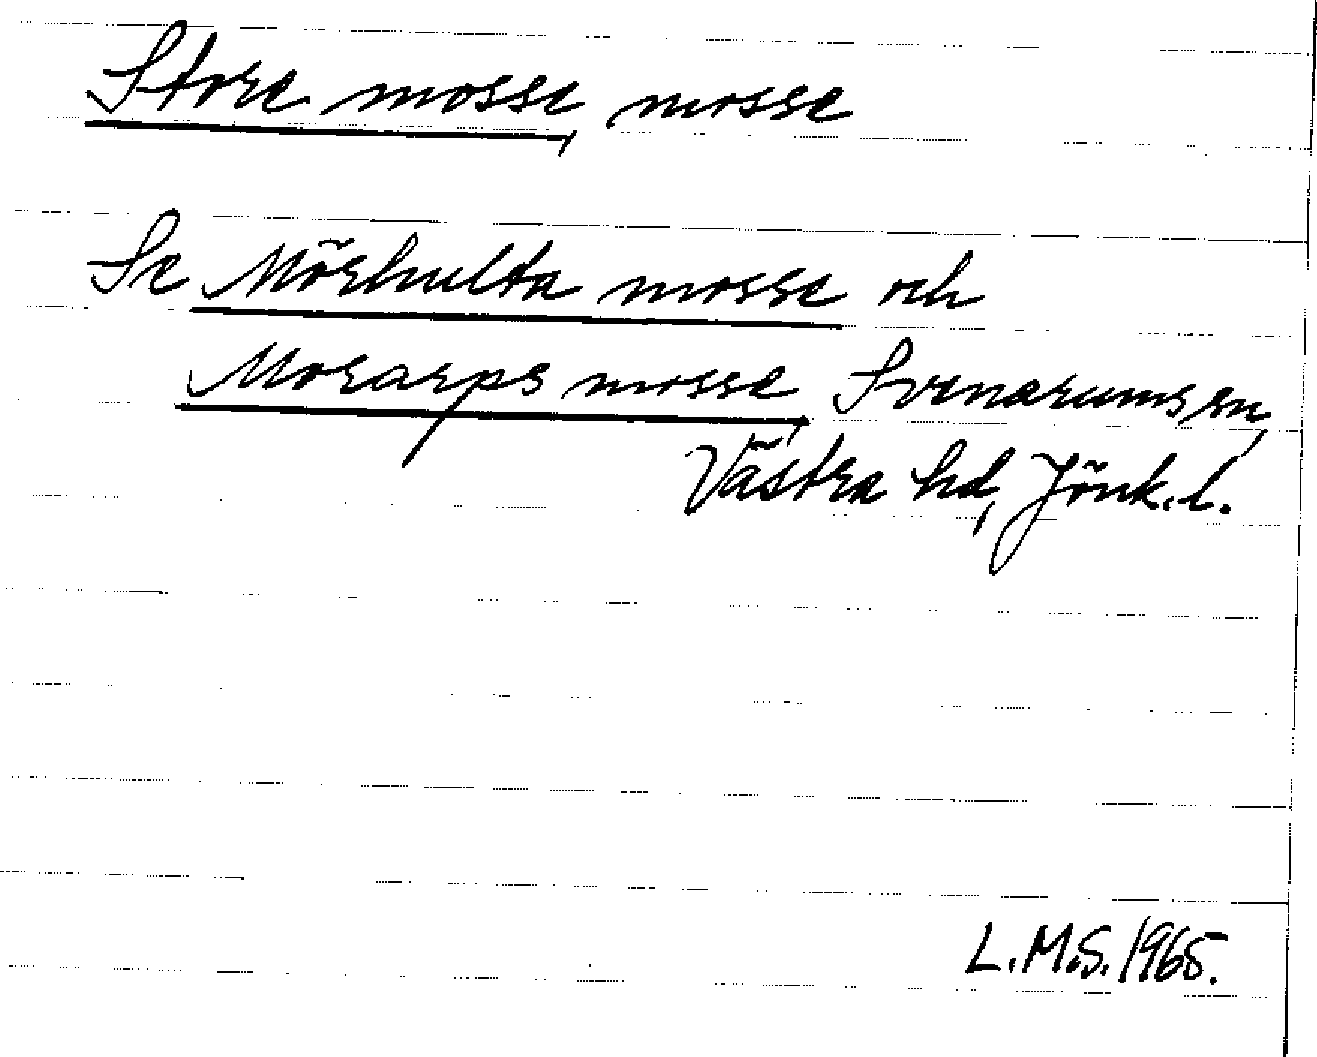 Store mosse, mosse
Se Mörhulta mosse och
Morarps mosse, Svenarums sn,
Västra hd, Jönk. l.
L.M.S. 1965.